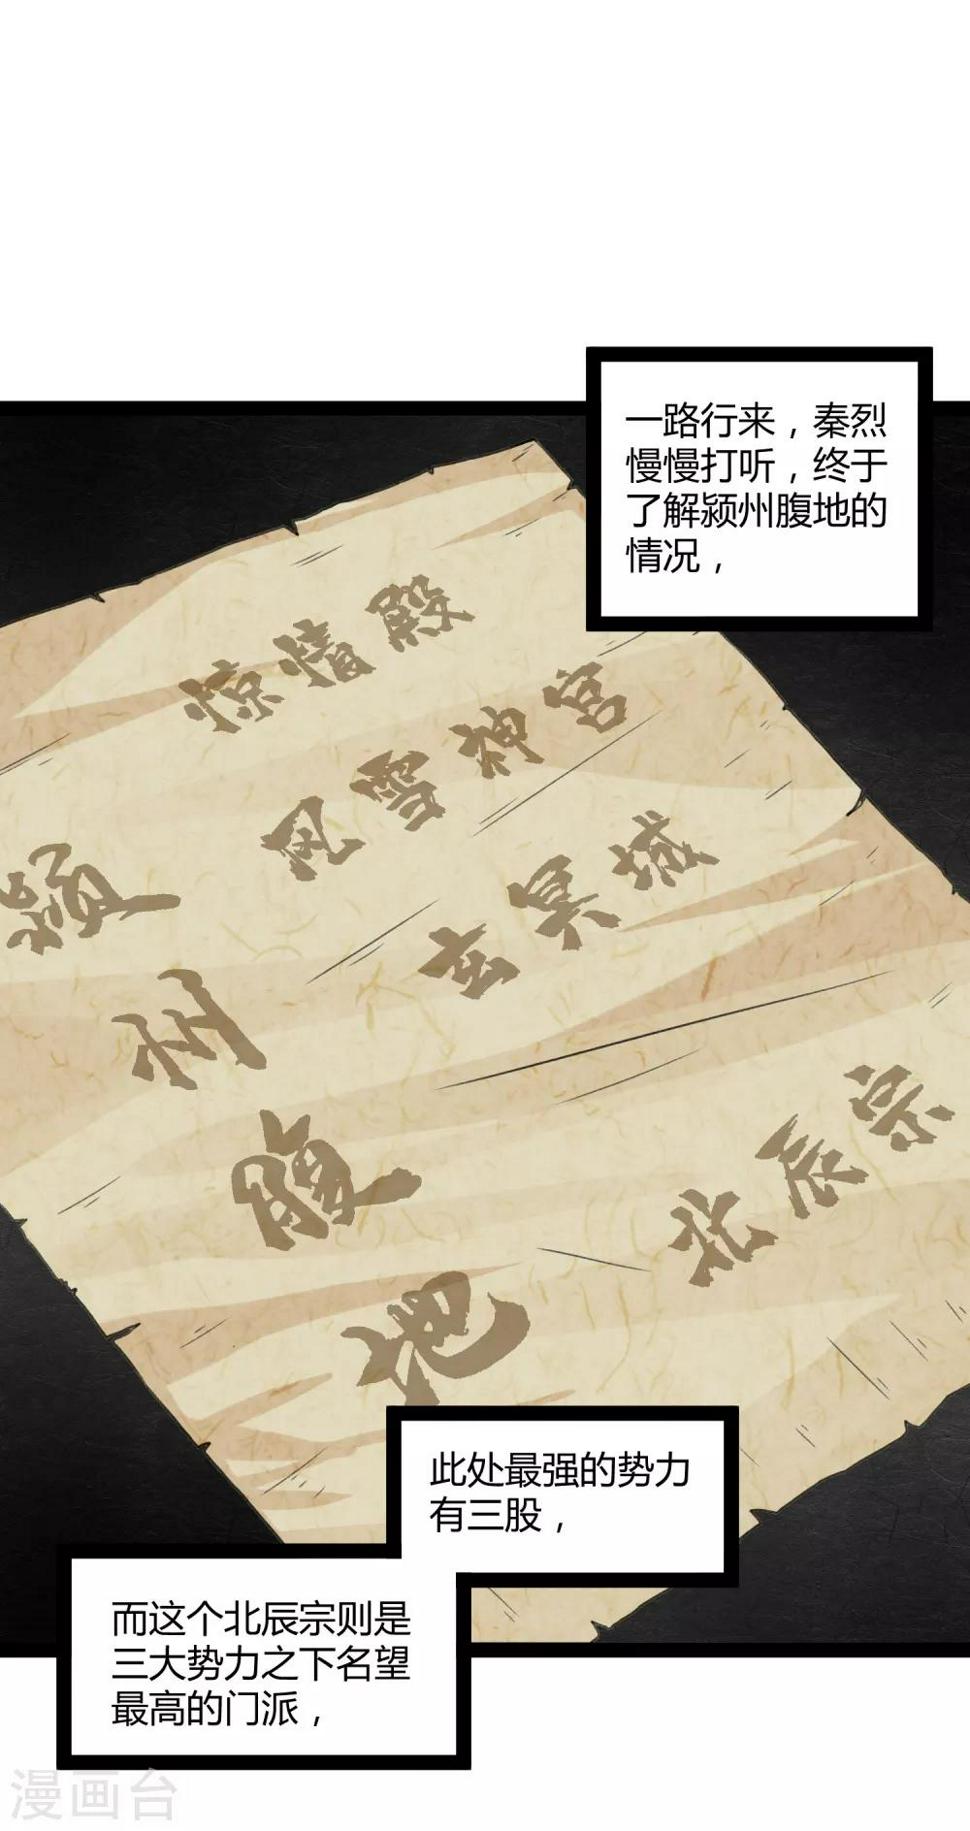 一路行来，秦烈
慢慢打听，终于
了解颍州腹地的
情况，
惊情殿
风雪神宫
玄冥城
颍州腹地
北辰宗
此处最强的势力
有三股，
而这个北辰宗则是
三大势力之下名望
最高的门派，
漫画台